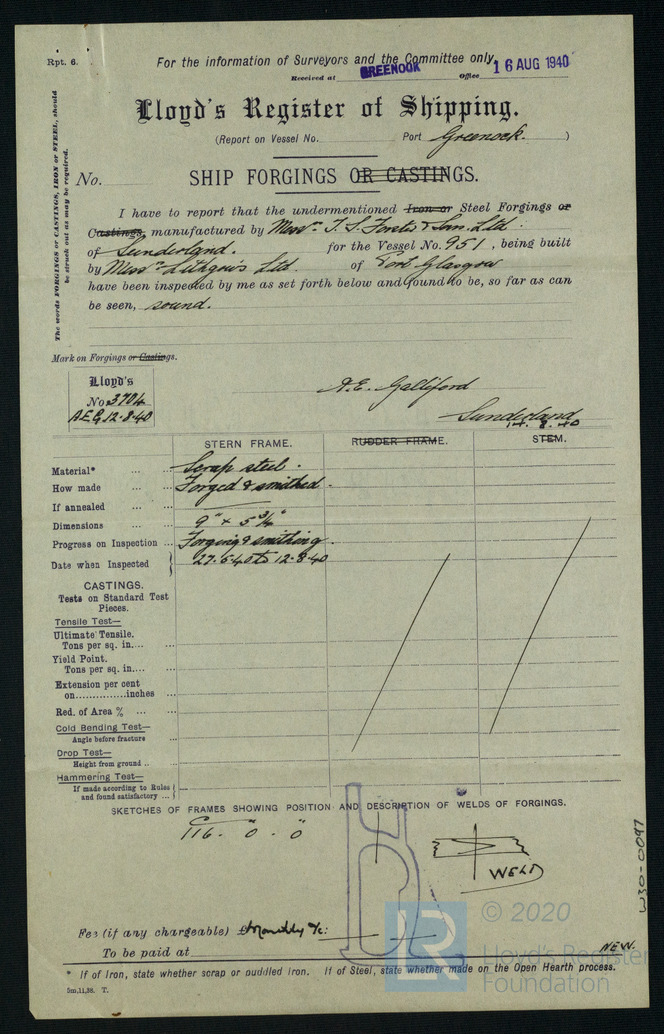 Rpt. 6.
For the information of Surveyors and the Committee only.
Received at GREENOCK Office 16 AUG 1940
Lloyd's Register of Shipping.
(Report on Vessel No. Port Greenock. )
No. SHIP FORGINGS OR CASTINGS.
The words FORGINGS or CASTINGS, IRON or STEEL, should
be struck out as may be required.
I have to report that the undermentioned Iron or Steel Forgings or
Castings, manufactured by Messrs T. S. Forster & Son. Ltd
of Sunderland. for the Vessel No. 951, being built
by Messrs Lithgows Ltd. of Port Glasgow
have been inspected by me as set forth below and found to be, so far as can
be seen, sound.
Mark on Forgings or Castings.
Lloyd's
No 3704
A.E.G. 12-8-40
A.E. Galliford
Sunderland
14.8.40
STERN FRAME. RUDDER FRAME. STEM.
Material* Scrap steel.
How made Forged & smithed.
If annealed
Dimensions 9" x 5 3/4"
Progress on Inspection Forging & smithing.
Date when Inspected 27-6-40 to 12-8-40
CASTINGS.
Tests on Standard Test
Pieces.
Tensile Test—
Ultimate Tensile.
Tons per sq. in.
Yield Point.
Tons per sq. in.
Extension per cent
on inches
Red. of Area %
Cold Bending Test—
Angle before fracture
Drop Test—
Height from ground
Hammering Test—
If made according to Rules
and found satisfactory
SKETCHES OF FRAMES SHOWING POSITION AND DESCRIPTION OF WELDS OF FORGINGS.
C " "
116. 0. 0
WELD
Fee (if any chargeable) £ Monthly a/c:
To be paid at
NEW.
* If of Iron, state whether scrap or puddled iron. If of Steel, state whether made on the Open Hearth process.
5m,11,38. T.
W30-0097
© 2020
LR Lloyd's Register
Foundation